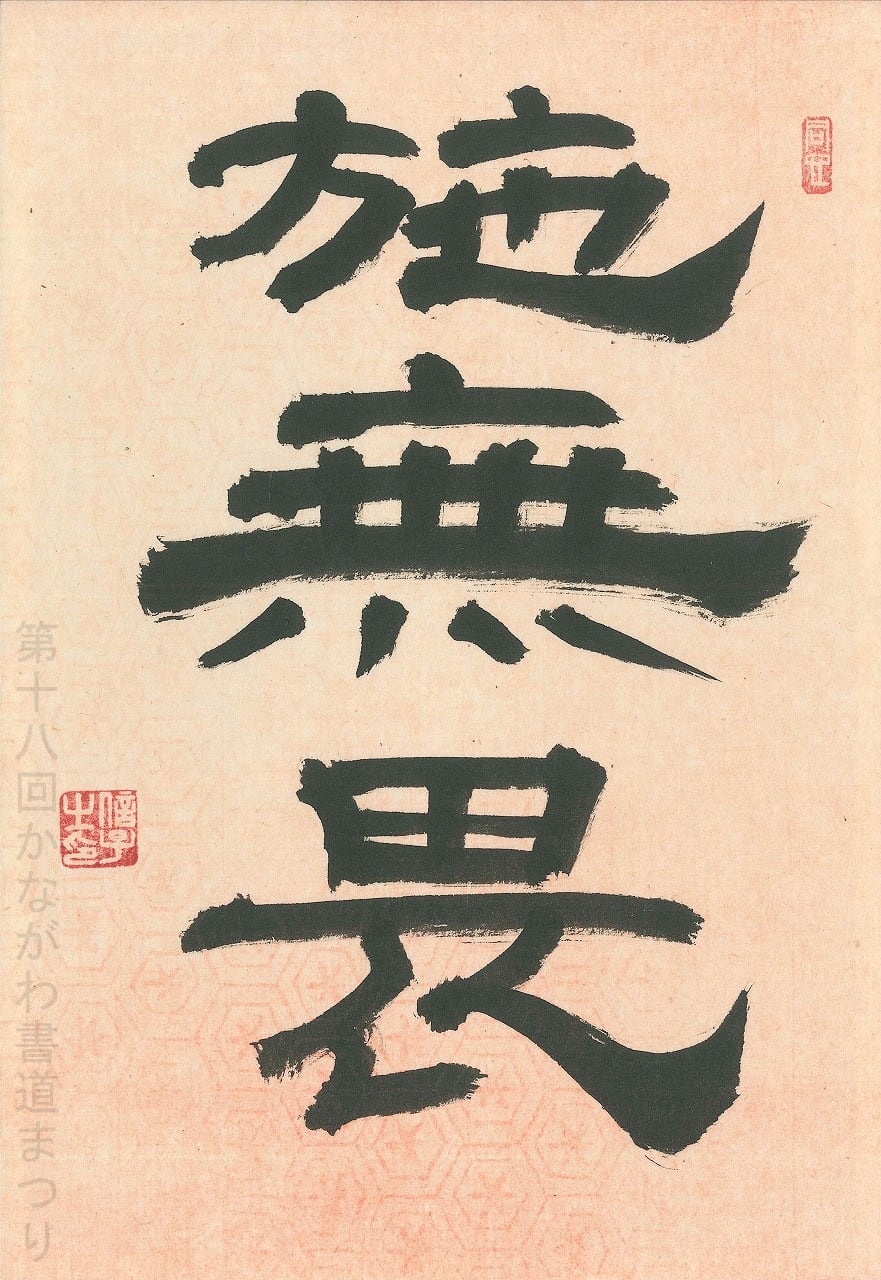 施無畏
第十八回かながわ書道まつり